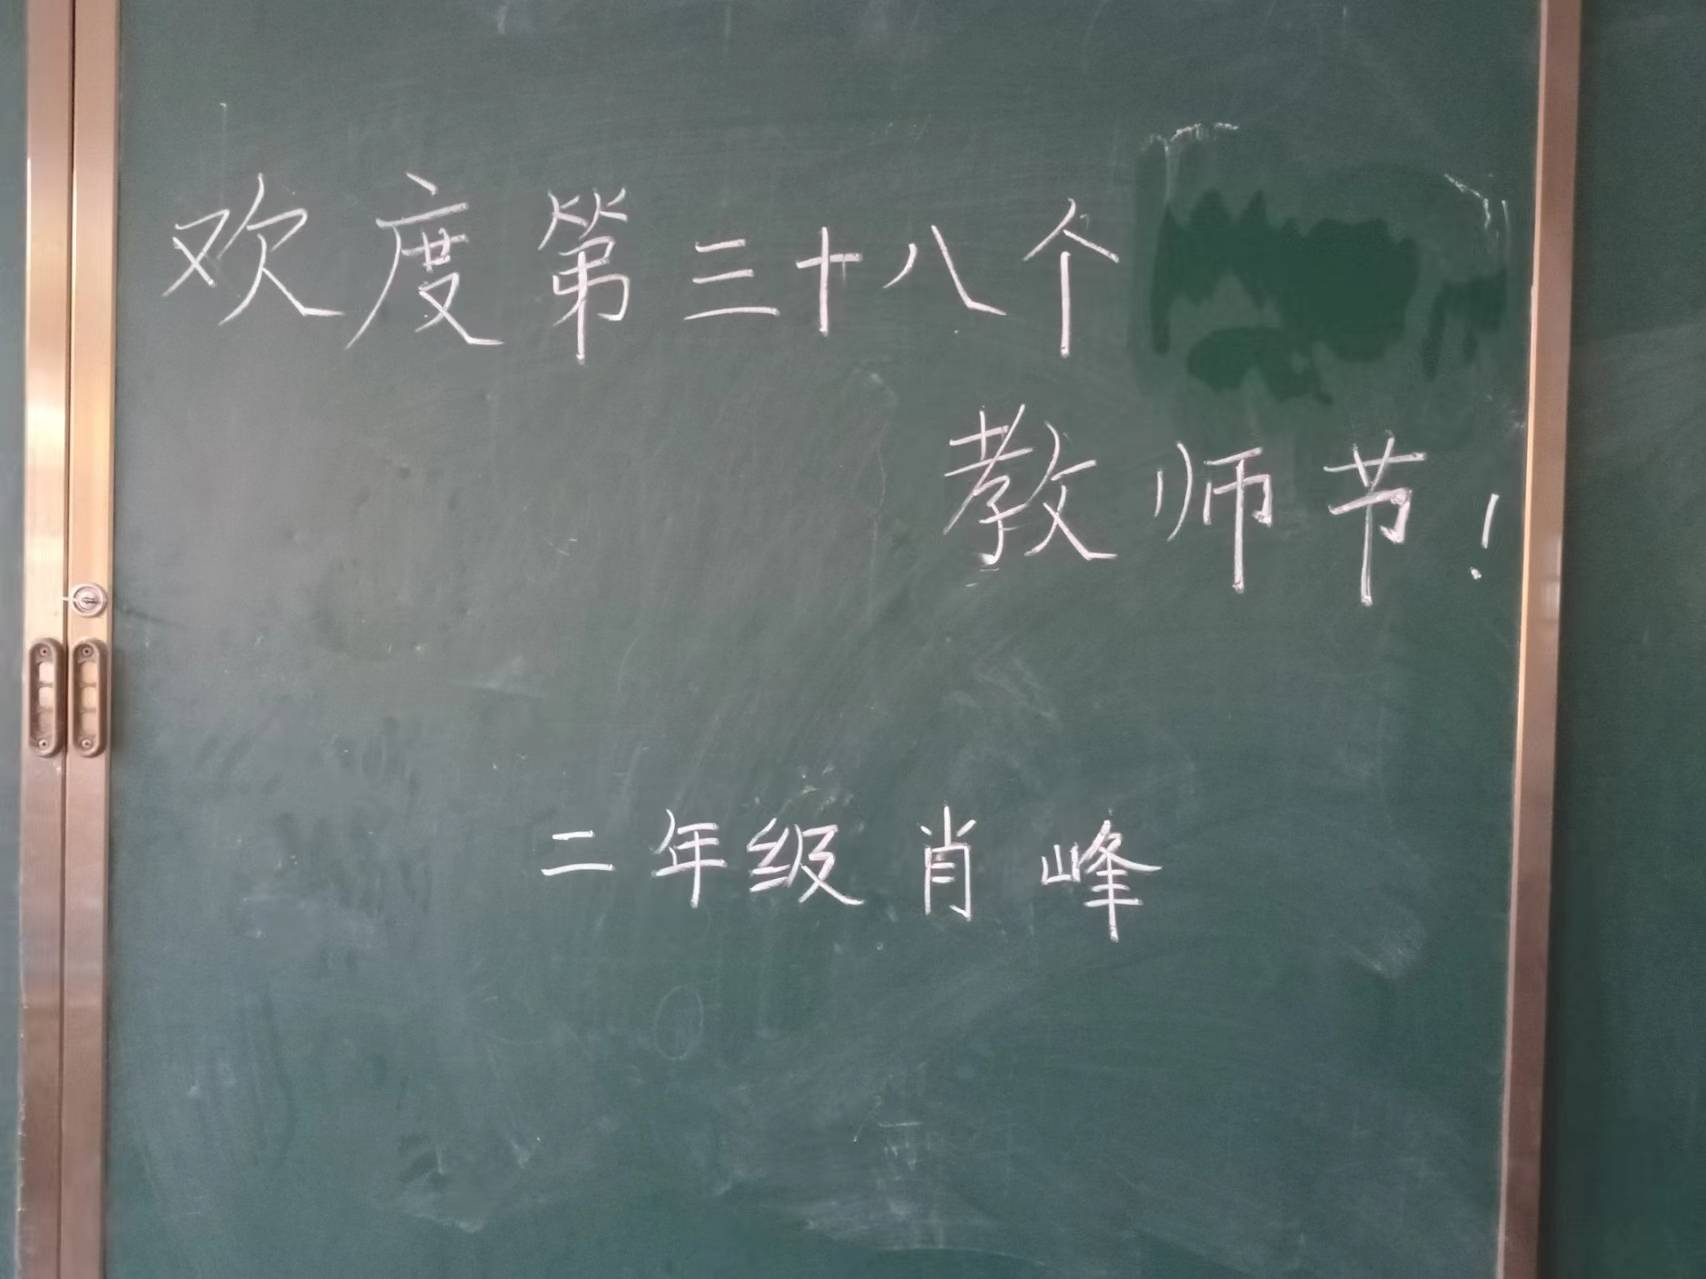 欢度第三十八个
教师节！
二年级肖峰